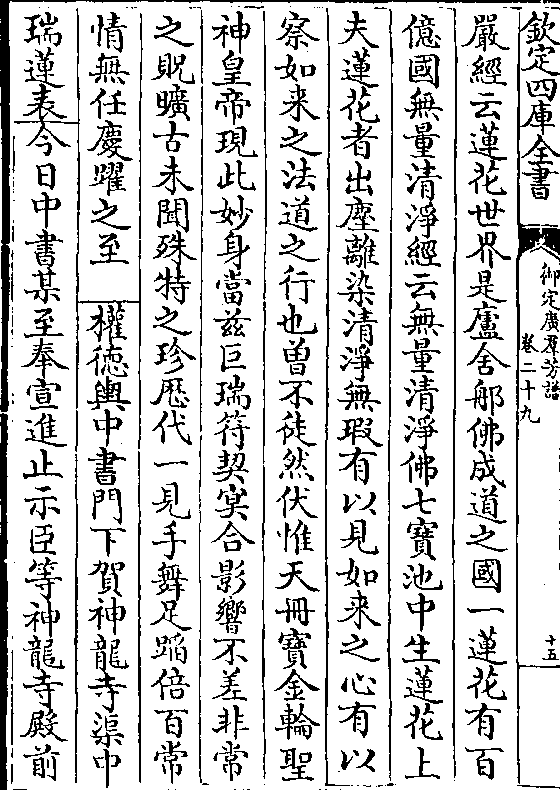 欽定四庫全書
御定廣羣芳譜
卷二十九
十五
嚴經云蓮花世界是廬舍那佛成道之國一蓮花有百
億國無量清淨經云無量清淨佛七寶池中生蓮花上
夫蓮花者出塵離染清淨無瑕有以見如来之心有以
察如来之法道之行也曽不徒然伏惟天冊寶金輪聖
神皇帝現此妙身當兹巨瑞符契㝠合影響不差非常
之貺曠古未聞殊特之珍厯代一見手舞足蹈倍百常
情無任慶躍之至 權德輿中書門下賀神龍寺渠中
瑞蓮表今日中書某至奉宣進止示臣等神龍寺殿前